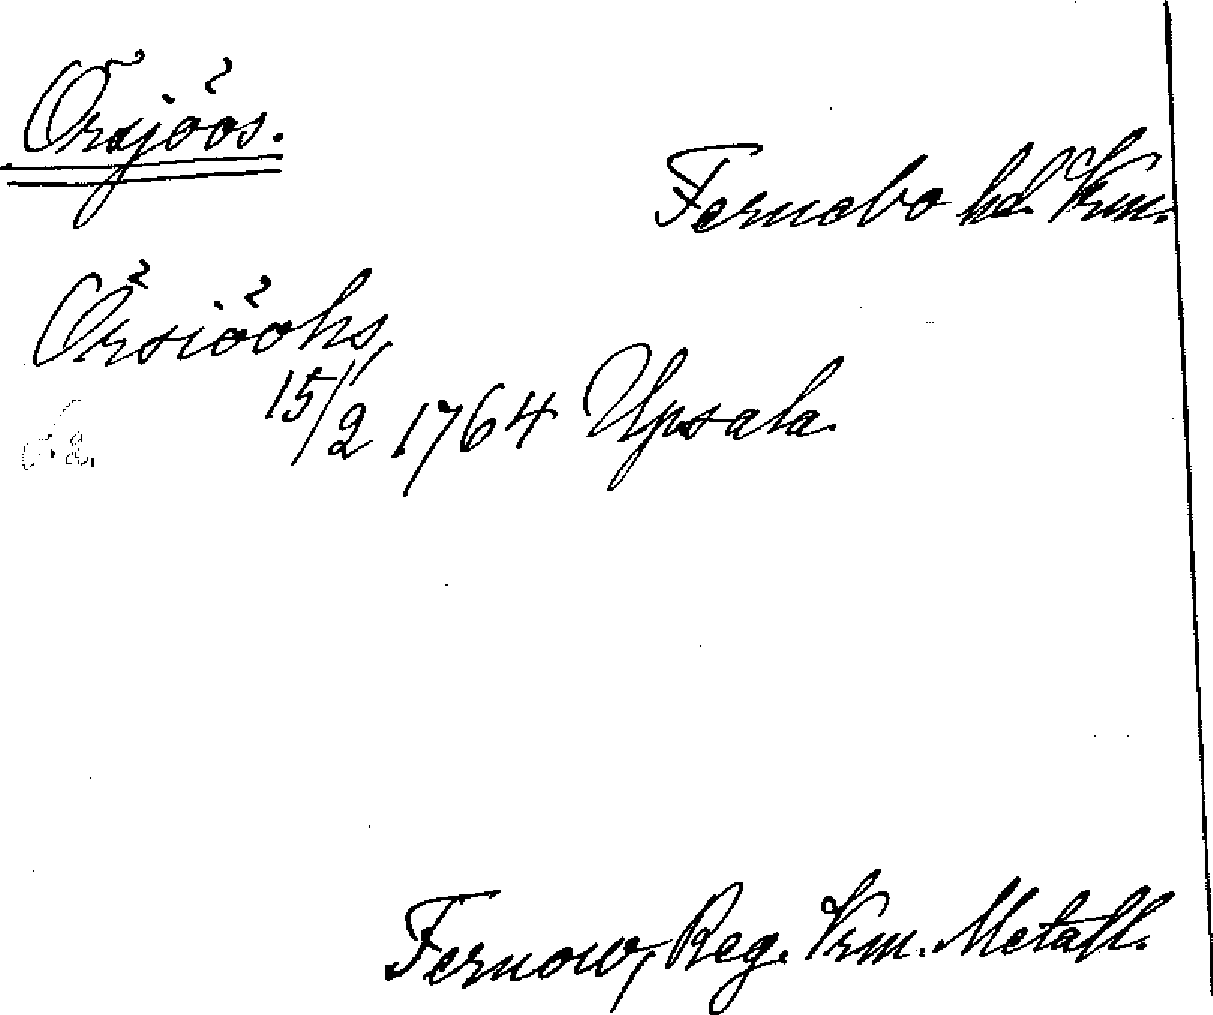 Örsjöos.
Fernebo hd. Vrm.
Örsiöohs
15/2 1764 Upsala
Fernow, Reg. Vrm. Metall.